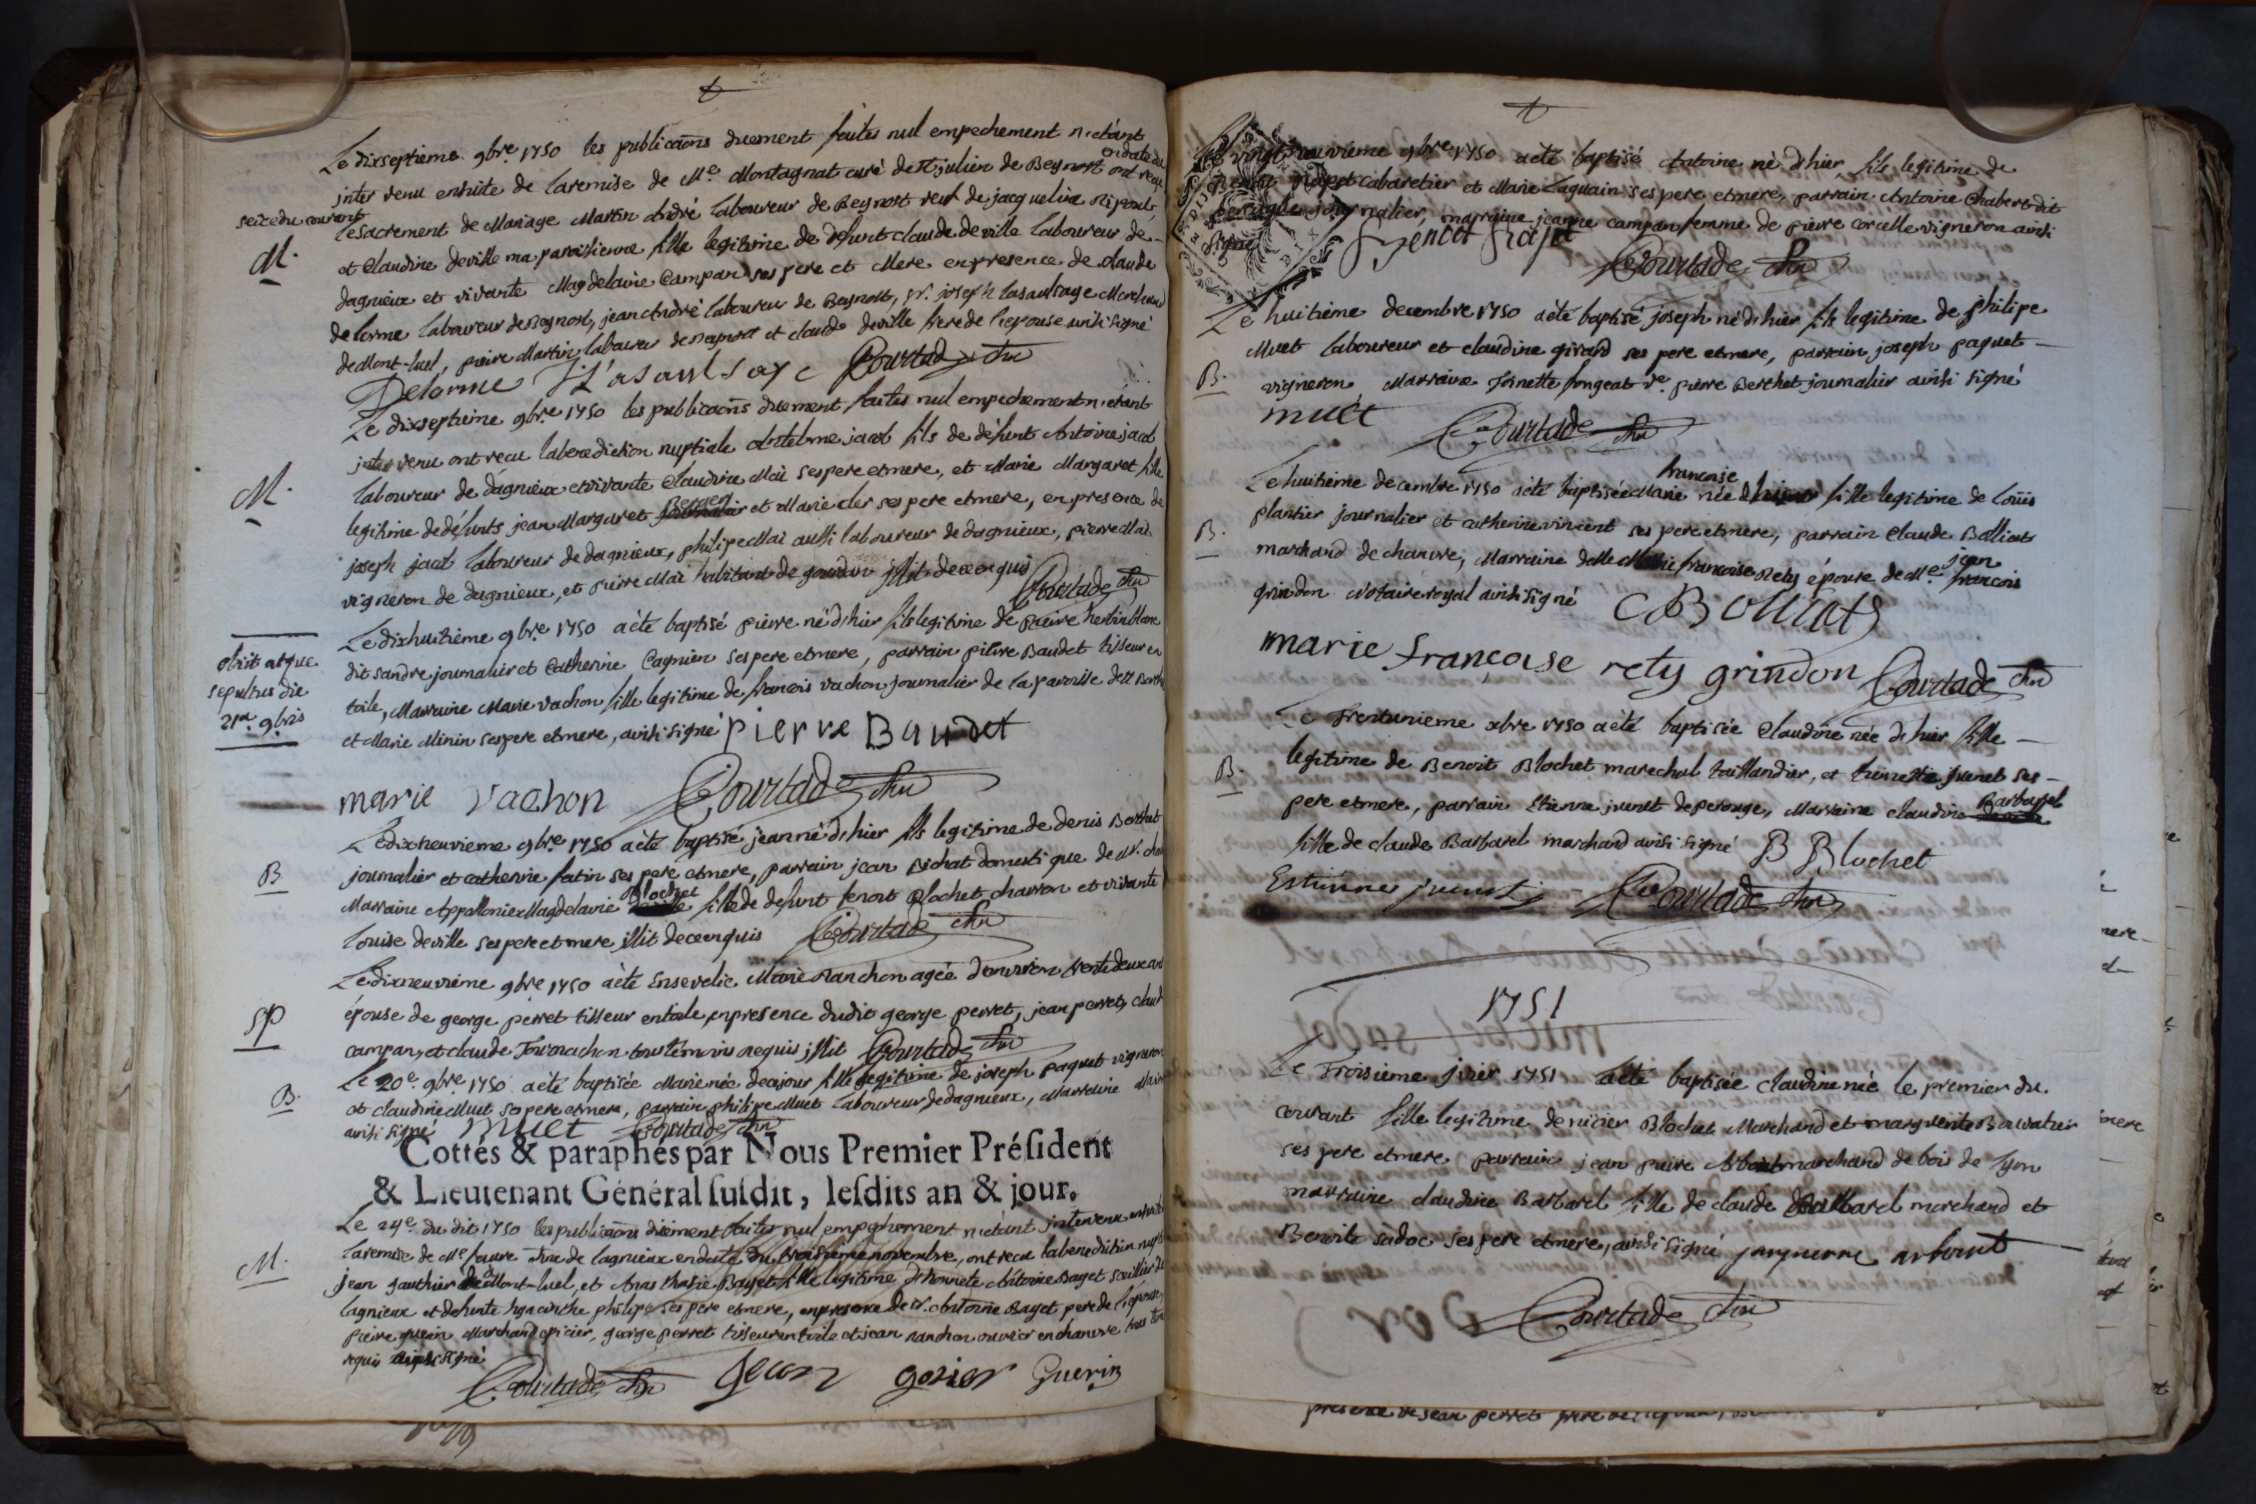 Le dixseptieme 9bre. 1750 les publicaons duement faites nul empechement n'etant
inter venu ensuite de laremise de Me. Montagnat curé de St julien de Beynost en date du
seize du courant ont recu
M.
lesacrement de Mariage Martin André laboureur de Beynost veuf de jacqueline
et Claudine deville ma paroissienne fille legitime de defunt claude deville laboureur de
dagnieux et vivante Magdelaine Campan ses pere et Mere en presence de claude
delorme laboureur de Beynost, jean André laboureur de Beynost, sr. joseph lasausaye Marchand
de Mont-luel, pierre Martin laboureur de et claude deville frere de l'epouse ainsi signé
Delorme Lasaulsaye Courtade Curé
Le dixseptieme 9bre. 1750 les publicaons duement faites nul empechement n'etant
inter venu ont recu labenediction nuptiale Antelme jacob fils de défunt Antoine jacob
M.
laboureur de dagnieux et vivante Claudine Mai ses pere et mere, et Marie Margaret fille
legitime de défunts jean Margaret Berger et Marie ses pere et mere, en presence de
joseph jacob laboureur de dagnieux, philipe Mai aussi laboureur de dagnieux, pierre Mai
vigneron de dagnieux, et pierre Mai habitant de illit. de ce enquis Courtade Curé
obiit atque
sepultus die
21a. 9bris
Le dixhuitieme 9bre 1750 a èté baptisé pierre né d'hier fils legitime de pierre
dit sandre journalier et Catherine Cagnien ses pere et mere, parrain pierre Baudet tisseur en
toile, Marraine Marie Vachon fille legitime de francois Vachon journalier de la paroisse de
et Marie Minin ses pere et mere, ainsi signé Pierre Baudet
marie vachon Courtade Curé
Le dixneuvieme 9bre. 1750 a èté baptisé jean né d'hier fils legitime de denis Berthet
B
journalier et catherine fatin ses pere et mere, parrain jean Bichat domestique de Mr.
Marraine Appollonie Magdelaine Blochet fille de defunt benoit Blochet charron et vivante
louise deville ses pere et mere illit de ce enquis Courtade Curé
Le dixneuvieme 9bre 1750 a èté Ensevelie Marie Manchon agée d'environ trente deux ans
SP
épouse de george perret tisseur en toile, en presence dudit george perret, jean perret, claude
campan, et claude Tournachon tous témoins requis illit Courtade Curé
Le 20e. 9bre 1750 a èté baptisée Marie née de ce jour fille legitime de joseph paquet vigneron
B.
et claudine Muet ses pere et mere, parrain philipe Muet laboureur de dagnieux, Marraine
ainsi signé muet Courtade Curé
Cottés & paraphés par Nous Premier Préſident
& Lieutenant Général ſuſdit, leſdits an & jour.
Le 24e. du dit 1750 les publicaons düement faites nul empechement n'etant intervenu ensuite
M.
laremise de Me faure Curé de lagnieux en date du troisieme novembre, ont recu la benediction
jean gauthier de Mont-luel, et Anas thasie Baget fille legitime d'honnete Antoine Baget
lagnieux et defunte hyacinthe philipe ses pere et mere, en presence de sr. Antoine Baget pere de l'epouse
pierre guerin Marchand epicier, george perret tisseur en toile et jean nanchon ouvrier en chanvre tous
requis ainsi signé
Courtade Curé Guerin
Le vingt neuvieme 9bre 1750 a èté baptisé Antoine né d'hier fils legitime de
cabaretier et Marie laguain ses pere et mere, parrain Antoine Chabert dit
journalier, marraine jeanne campan femme de pierre corcelle vigneron ainsi
signé
Courtade Curé
Le huitième decembre 1750 a èté baptisé joseph né d'hier fils legitime de philipe
Muet laboureur et claudine girard ses pere et mere, parrain joseph paquet
B.
vigneron Marraine Toinette fongeat ve. pierre Berthet journalier ainsi signé
muet Courtade Curé
Le huitième decembre 1750 a èté baptisée Marie francoise née fille legitime de Loüis
B.
plantier journalier et catherine vincent ses pere et mere, parrain Claude Balliat
marchand de chanvre, Marraine delle Marie francoise Rety épouse de Me. jean francois
grindon Notaire royal ainsi signé C Balliat
marie françoise rety grindon Courtade Curé
Le Trentunieme xbre 1750 a èté baptisée Claudine née d'hier fille
B.
legitime de Benoit Blochet marechal taillandier, et junet ses
pere et mere, parrain Etienne junet de perouge, Marraine claudine Barbarel
fille de claude Barbarel marchand ainsi signé B Blochet
Estienne junet Courtade Curé
1751
Le Troisieme jvier 1751 a èté baptisée Claudine née le premier du
courant fille legitime de nicier Blochet Marchand et marguerite
ses pere et mere parrain jean piere Arbout marchand de bois de lyon
marraine claudine Barbarel fille de claude Barbarel marchand et
Benoite sadoc ses pere et mere, ainsi signé jan pierre arbout
Courtade Curé